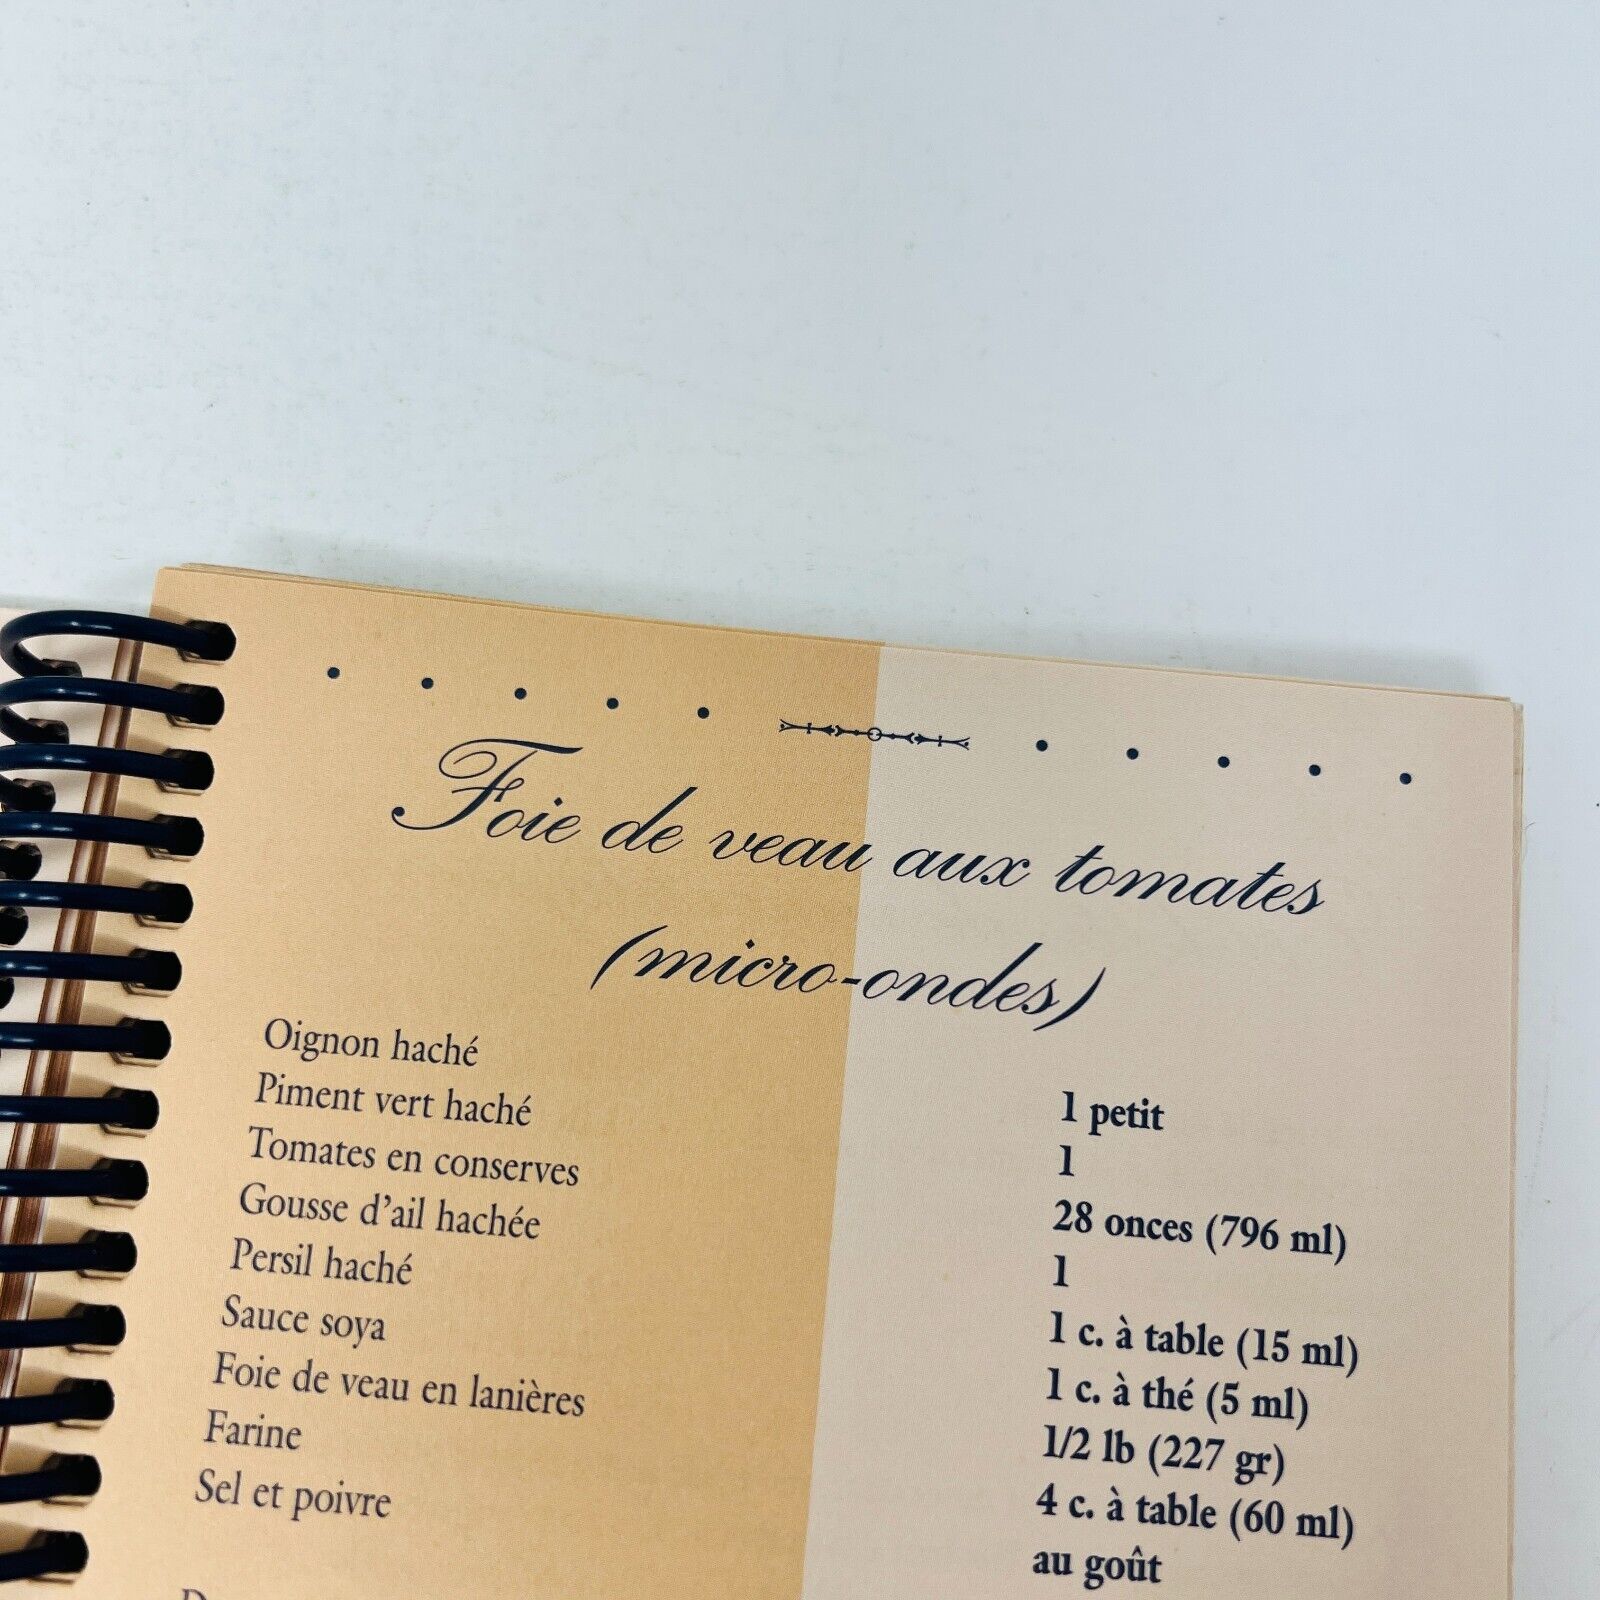 Foie de veau aux tomates
(micro-ondes)
Oignon haché 1 petit
Piment vert haché 1
Tomates en conserves 28 onces (796 ml)
Gousse d'ail hachée 1
Persil haché 1 c. à table (15 ml)
Sauce soya 1 c. à thé (5 ml)
Foie de veau en lanières 1/2 lb (227 gr)
Farine 4 c. à table (60 ml)
Sel et poivre au goût